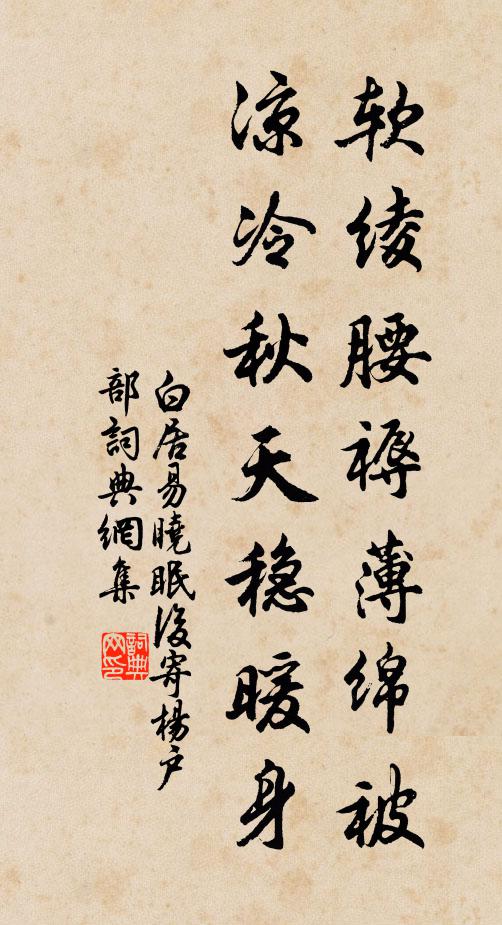 软绫腰褥薄绵被
凉冷秋天稳暖身
白居易曉眠後寄楊户
部詞典網集
詞典网印